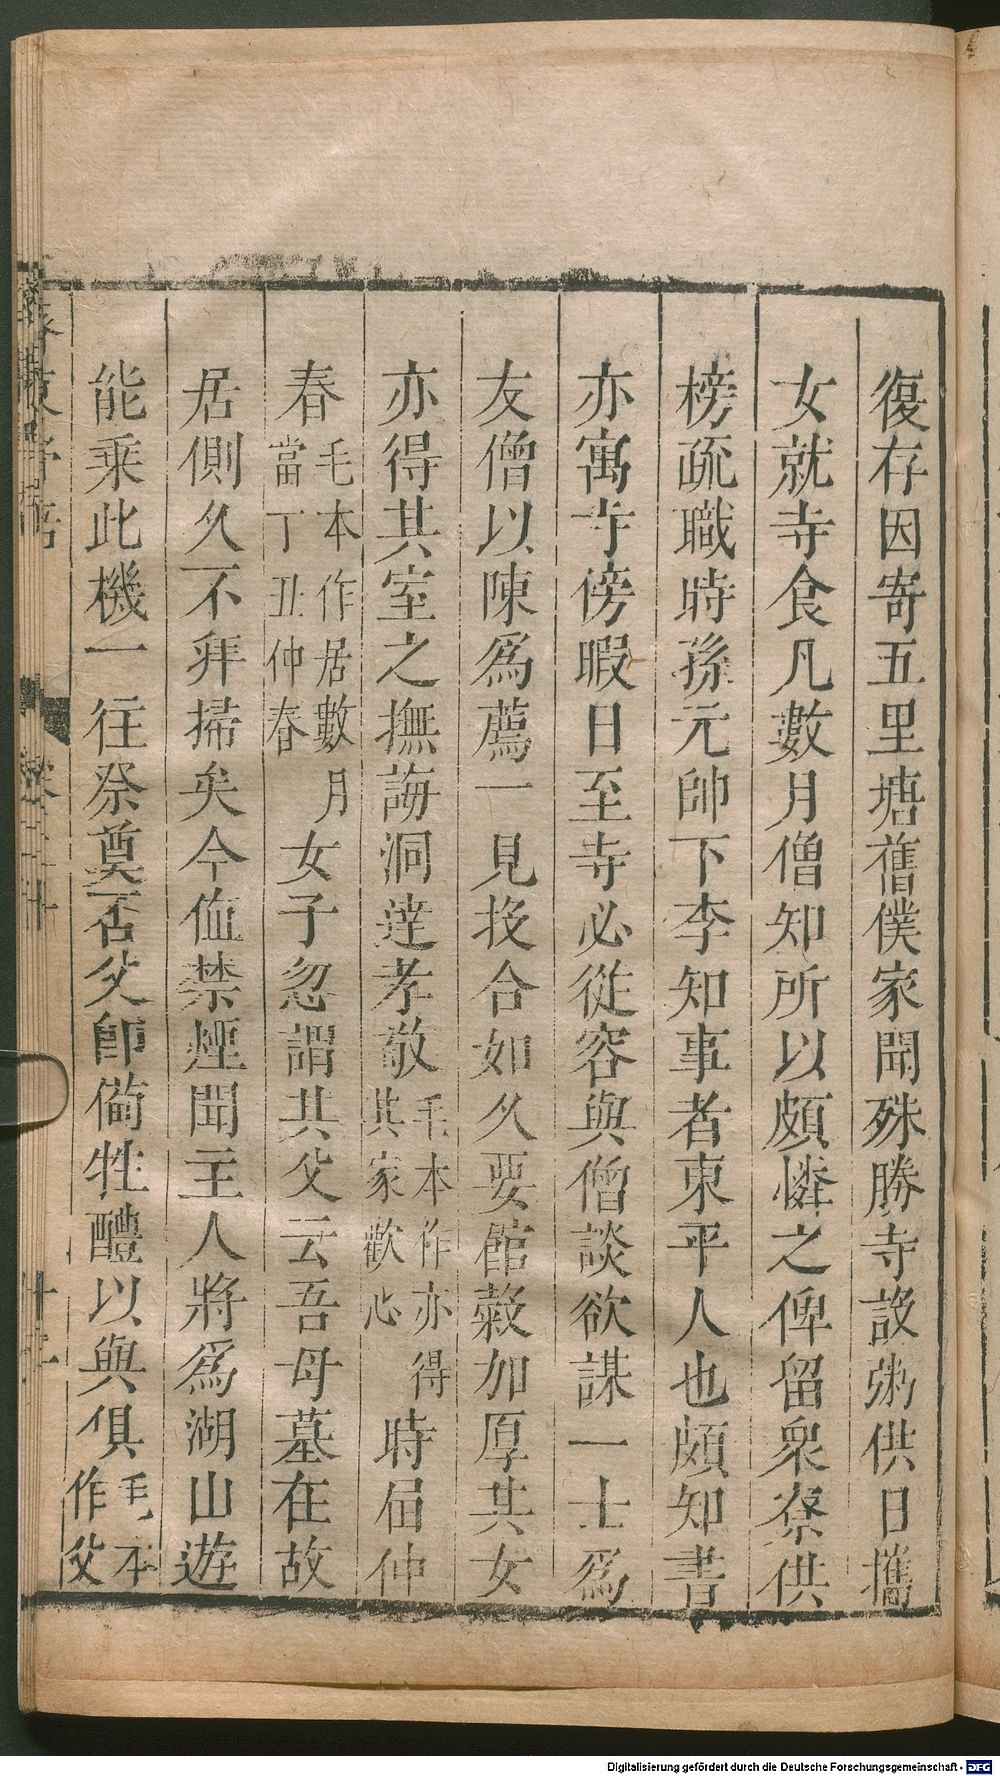 復存因寄五里塘舊僕家聞殊勝寺設粥供日攜
女就寺食凡數月僧知所以頗憐之俾留衆寮供
榜疏職時孫元帥下李知事者東平人也頗知書
亦寓寺傍暇日至寺必從容與僧談欲謀一士爲
友僧以陳爲薦一見投合如久要館穀加厚其女
亦得其室之撫誨洞達孝敬毛本作亦得其家歡心時屆仲
春毛本作居數月當丁丑仲春女子忽謂其父云吾母墓在故
居側久不拜掃矣今值禁煙聞主人將爲湖山遊
能乗此機一往祭奠否父卽備牲醴以與俱毛本作父
Digitalisierung gefördert durch die Deutsche Forschungsgemeinschaft - DFG